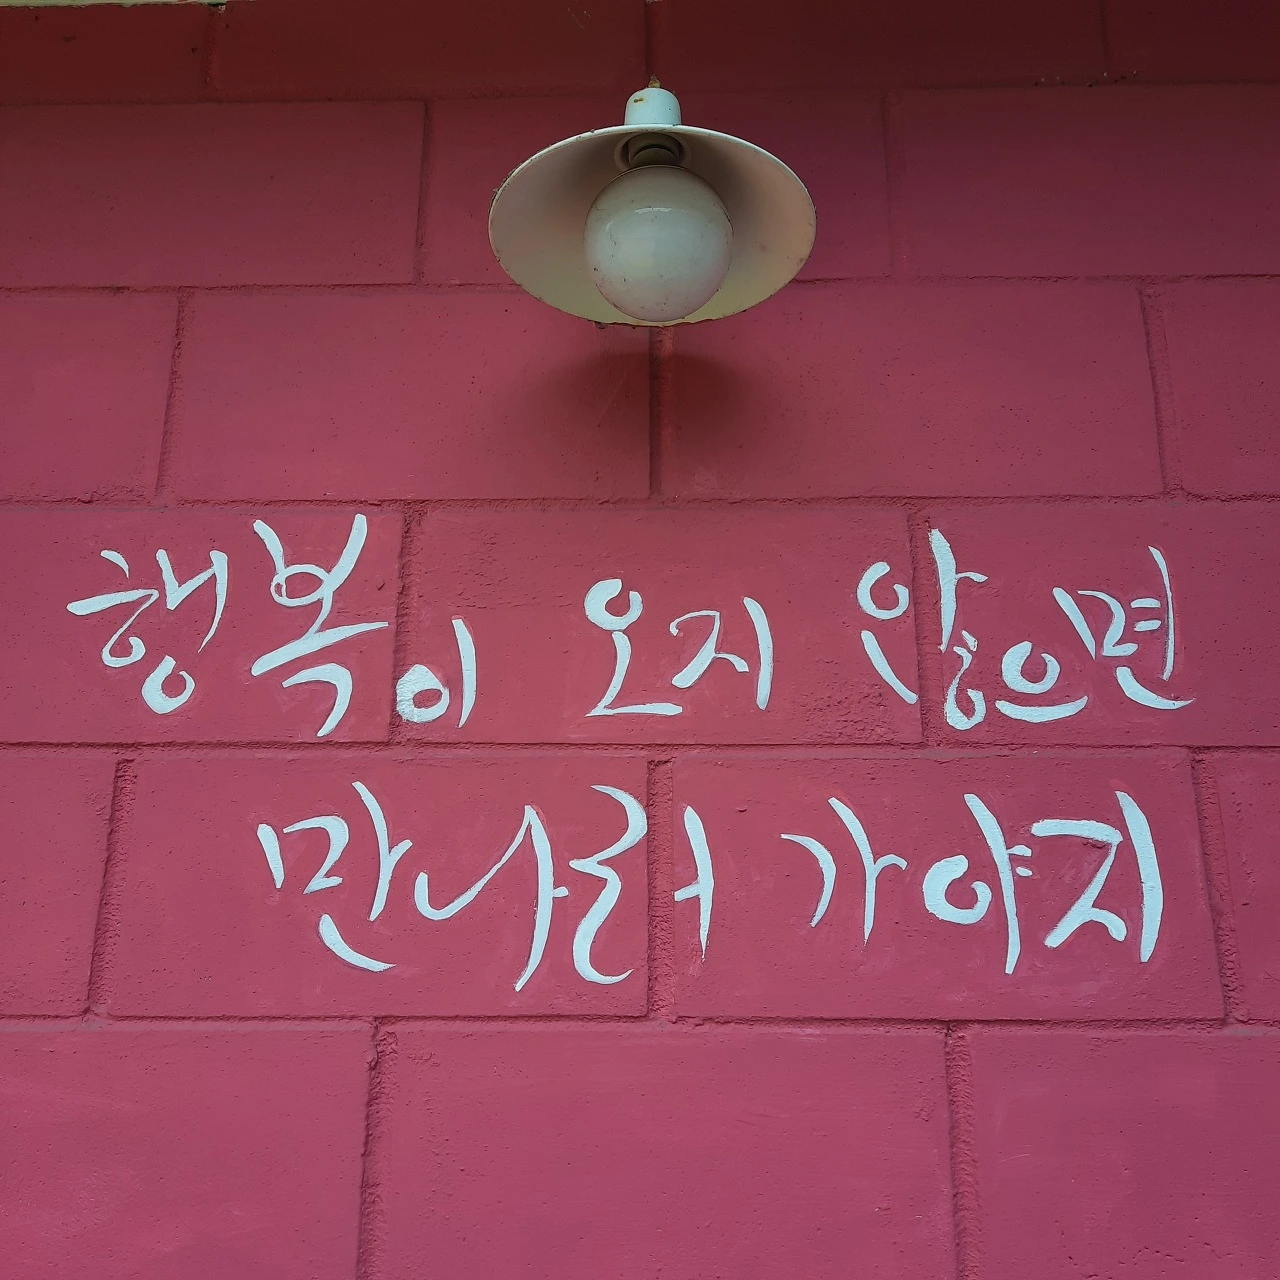 행복이 오지 않으면
만나러 가야지